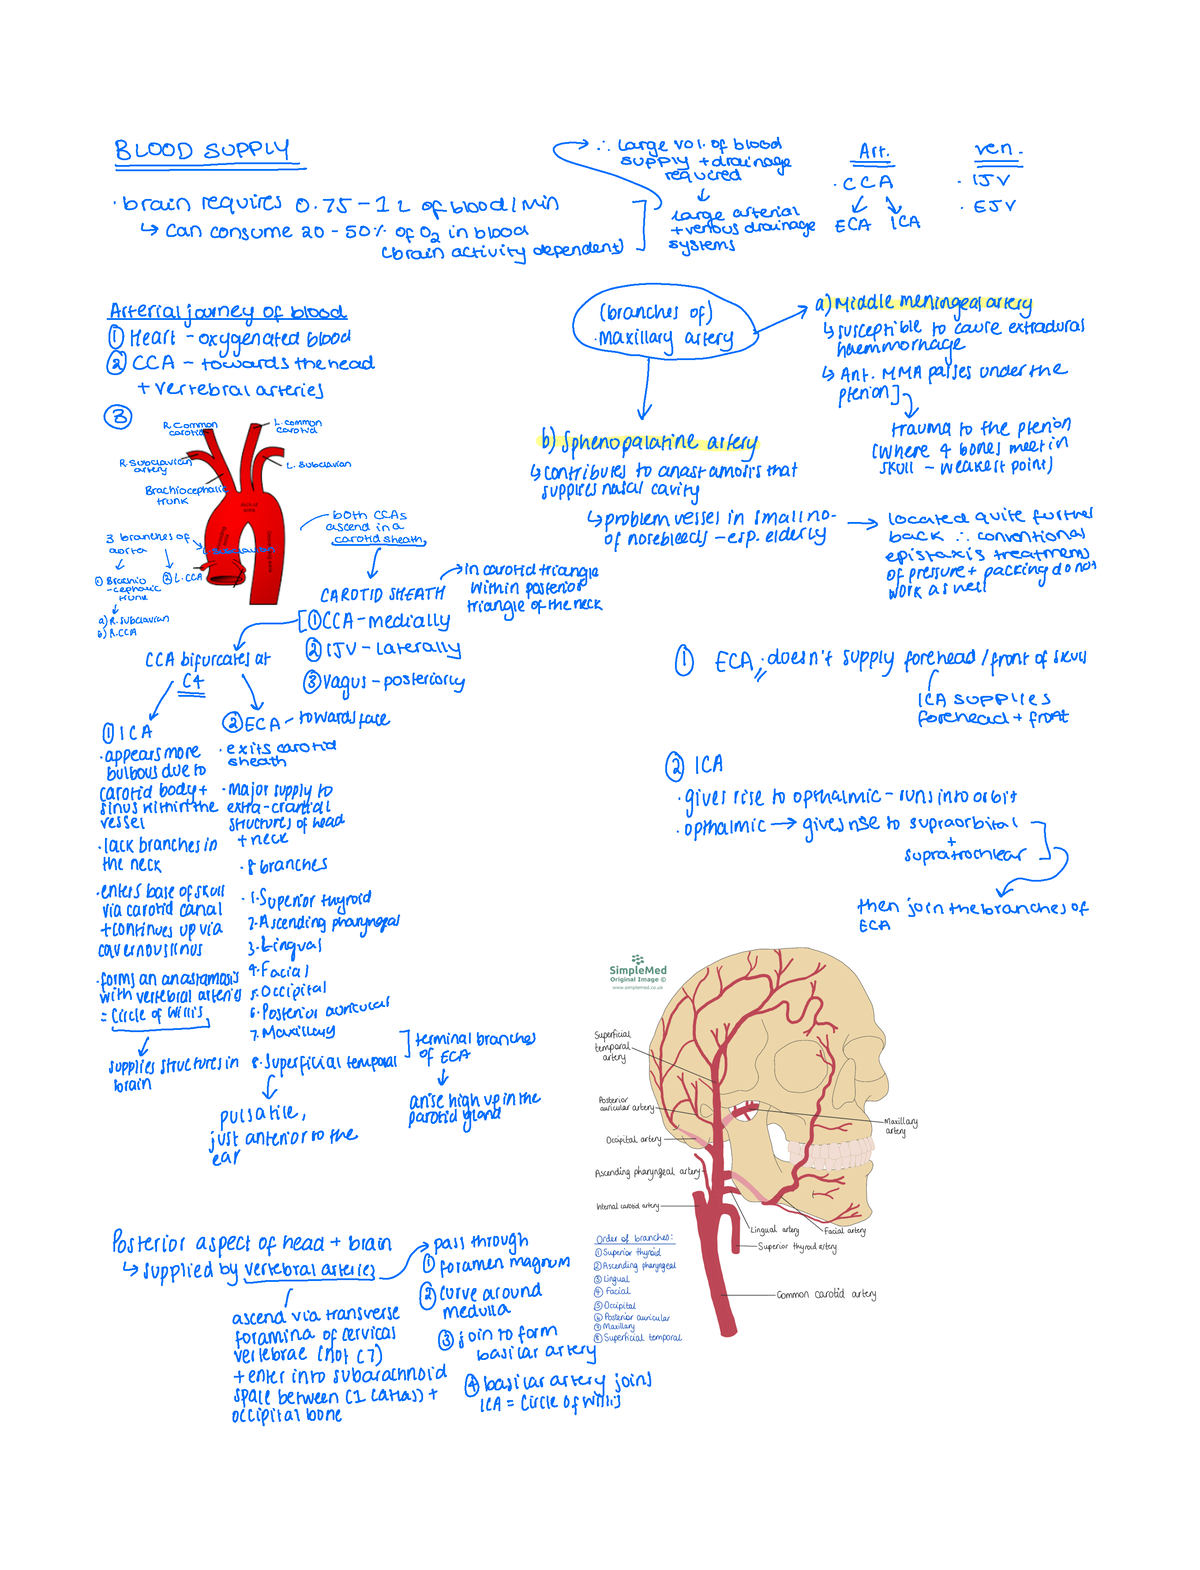 BLOOD SUPPLY
· brain requires 0.75 - 1 L of blood/min
↳ can consume 20 - 50% of O2 in blood
(brain activity dependent)
∴ large vol. of blood
supply + drainage
required
large arterial
+ venous drainage
systems
Art.
· CCA
ECA ICA
ven.
· IJV
· EJV
Arterial journey of blood
① Heart - oxygenated blood
② CCA - towards the head
+ vertebral arteries
③
R. Common
carotid
L. common
carotid
R. Subclavian
artery
L. Subclavian
Brachiocephalic
trunk
3 branches of
aorta
L. Subclavian
① Brachio
-cephalic
trunk
② L. CCA
a) R. subclavian
b) R. CCA
both CCAs
ascend in a
carotid sheath
CAROTID SHEATH
in carotid triangle
within posterior
triangle of the neck
① CCA - medially
② IJV - laterally
③ Vagus - posteriorly
CCA bifurcates at
C4
① ICA
· appears more
bulbous due to
carotid body +
sinus within the
vessel
· lack branches in
the neck
· enters base of skull
via carotid canal
+ continues up via
cavernous sinus
· forms an anastamosis
with vertebral arteries
= Circle of Willis
supplies structures in
brain
② ECA - towards face
· exits carotid
sheath
· Major supply to
extra-cranial
structures of head
+ neck
· 8 branches
· 1. Superior thyroid
2. Ascending pharyngeal
3. Lingual
4. Facial
5. Occipital
6. Posterior auricular
7. Maxillary
8. Superficial temporal
terminal branches
of ECA
arise high up in the
parotid gland
pulsatile,
just anterior to the
ear
(branches of)
· Maxillary artery
a) Middle meningeal artery
↳ susceptible to cause extradural
haemmorhage
↳ Ant. MMA passes under the
pterion]
trauma to the pterion
(where 4 bones meet in
skull - weakest point)
b) Sphenopalatine artery
↳ contributes to anastamosis that
supplies nasal cavity
↳ problem vessel in small no-
of nosebleeds - esp. elderly
located quite further
back ∴ conventional
epistaxis treatments
of pressure + packing do not
work as well
① ECA · doesn't supply forehead/front of skull
ICA supplies
forehead + front
② ICA
· gives rise to opthalmic - runs into orbit
· opthalmic → gives rise to supraorbital
+
supratrochlear
then join the branches of
ECA
SimpleMed
Original Image ©
www.simplemed.co.uk
Superficial
temporal
artery
Posterior
auricular artery
Occipital artery
Ascending pharyngeal artery
Internal carotid artery
Maxillary
artery
Lingual artery
Facial artery
Superior thyroid artery
Common carotid artery
Order of branches:
① Superior thyroid
② Ascending pharyngeal
③ Lingual
④ Facial
⑤ Occipital
⑥ Posterior auricular
⑦ Maxillary
⑧ Superficial temporal
Posterior aspect of head + brain
↳ supplied by vertebral arteries
ascend via transverse
foramina of cervical
vertebrae (not C7)
+ enter into subarachnoid
space between C1 (atlas) +
occipital bone
pass through
① foramen magnum
② curve around
medulla
③ join to form
basilar artery
④ basilar artery joins
ICA = Circle of Willis